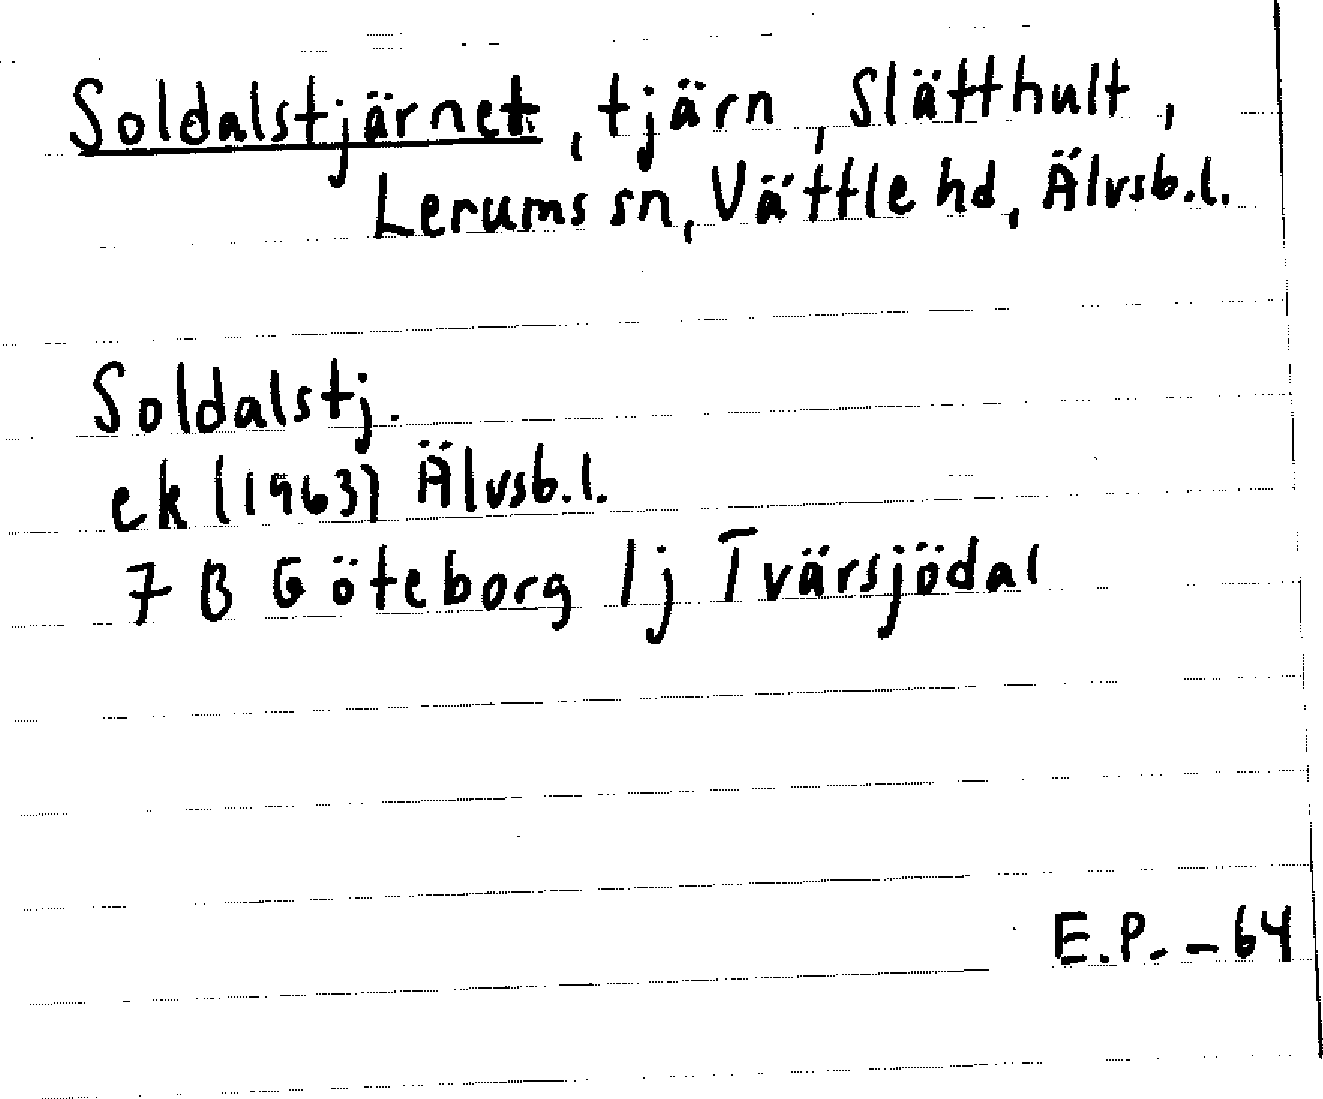 Soldalstjärnet, tjärn, Slätthult,
Lerums sn, Vättle hd, Älvsb.l.
Soldalstj.
ek (1963) Älvsb.l.
7 B Göteborg 1j Tvärsjödal
E.P. - 64